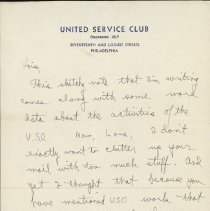 UNITED SERVICE CLUB
ORGANIZED 1917
SEVENTEENTH AND LOCUST STREETS
PHILADELPHIA
Lois
This sketchy note that I'm writing
comes along with some more
data about the activities of the
USO Now, Lois, I don't
exactly want to clutter up your
mail with too much stuff. And
yet I thought that because you
have mentioned USO work - that